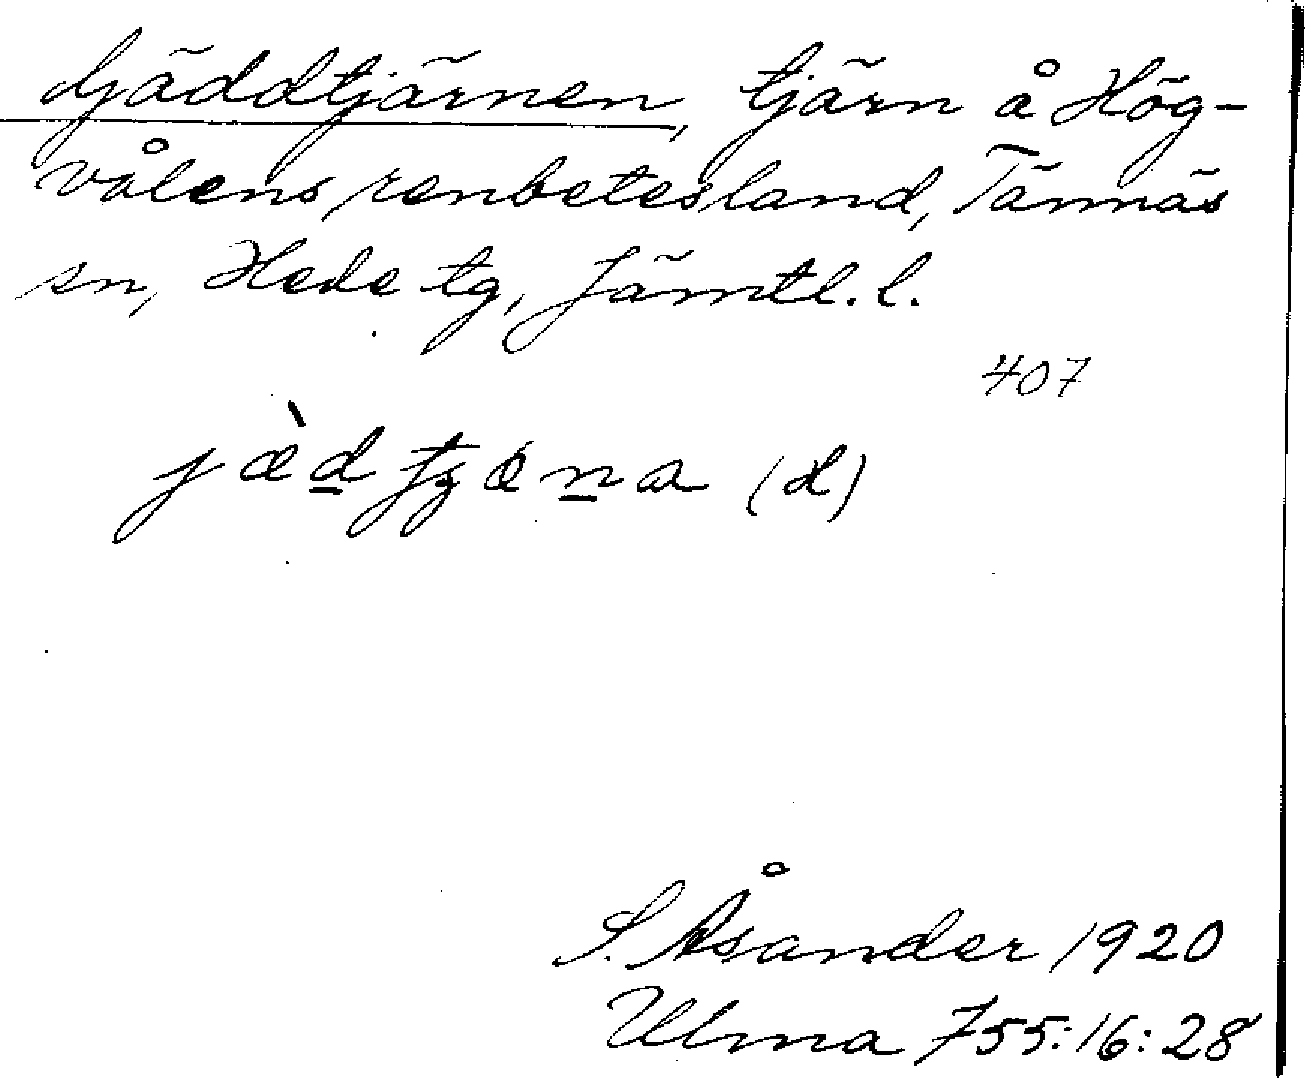 Gäddtjärnen, tjärn å Hög-
vålens renbetesland, Tännäs
sn, Hede tg, Jämtl. l.
407
jæ̀d̲ tʒæn̲a (d)
S. Åsander 1920
Ulma 755:16:28